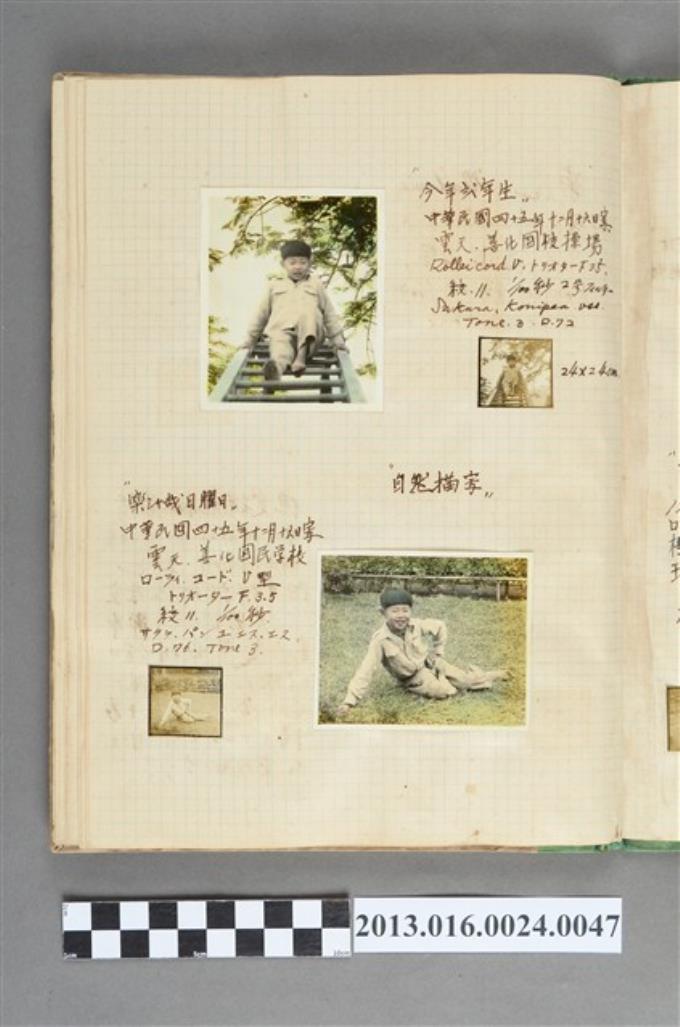 "今年弍年生"
中華民國四十五年十二月十六日寫
雲天．善化國校操場
Rolleicord V．トリオターF3.5．
絞．11． 1/100秒 2号フィルター
Sakura, Konipan uss.
Tone.3．D.72
24×24cm
"自然描写"
"楽シ哉日曜日"
中華民國四十五年十二月十六日寫
雲天．善化國民学校
ローライ．コード．V型
トリオーターF.3.5
絞11． 1/100秒．
サクラ．パン ユー エス．エス．
D.76．Tone 3.
2013.016.0024.0047